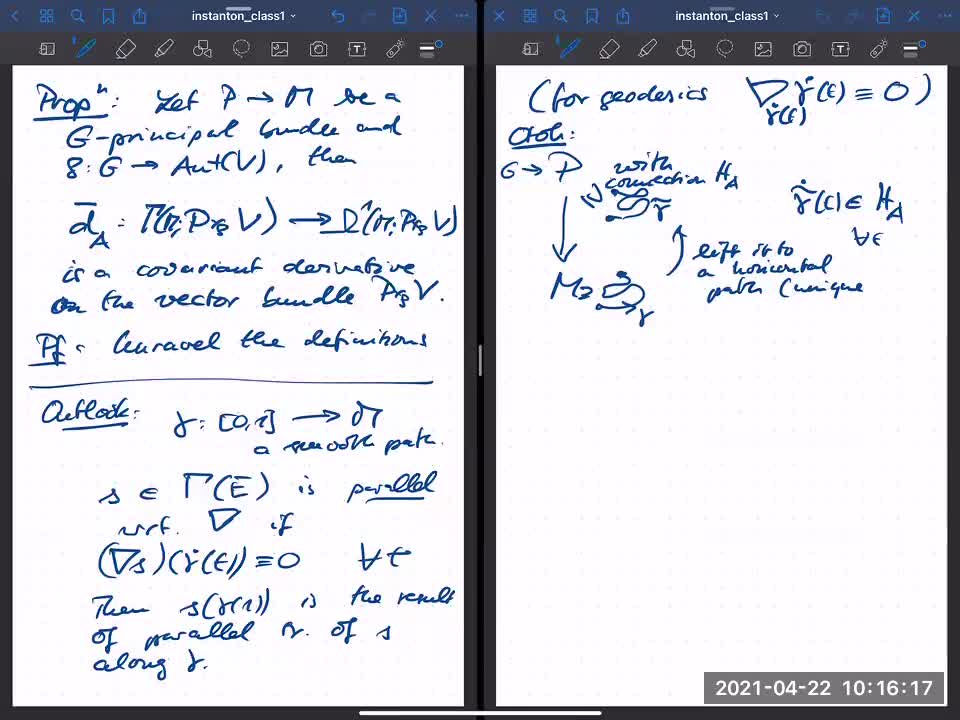 instanton_class1
Propⁿ: Let P → M be a
G-principal bundle and
ρ: G → Aut(V), then
d̄_A : Γ(M; P×_ρ V) → Ω¹(M; P×_ρ V)
is a covariant derivative
on the vector bundle P×_ρ V.
Pf: Unravel the definitions
Outlook: γ: [0,1] → M
a smooth path.
s ∈ Γ(E) is parallel
wrt. ∇ if
(∇s)(γ̇(t)) ≡ 0 ∀ t
Then s(γ(1)) is the result
of parallel tr. of s
along γ.
instanton_class1
(for geodesics ∇_γ̇(t) γ̇(t) ≡ 0)
Otoh:
G → P with
connection H_A
γ̃
γ̃̇(t) ∈ H_A
∀t
lift it to
a horizontal
path (unique
M ∋
γ
2021-04-22 10:16:17